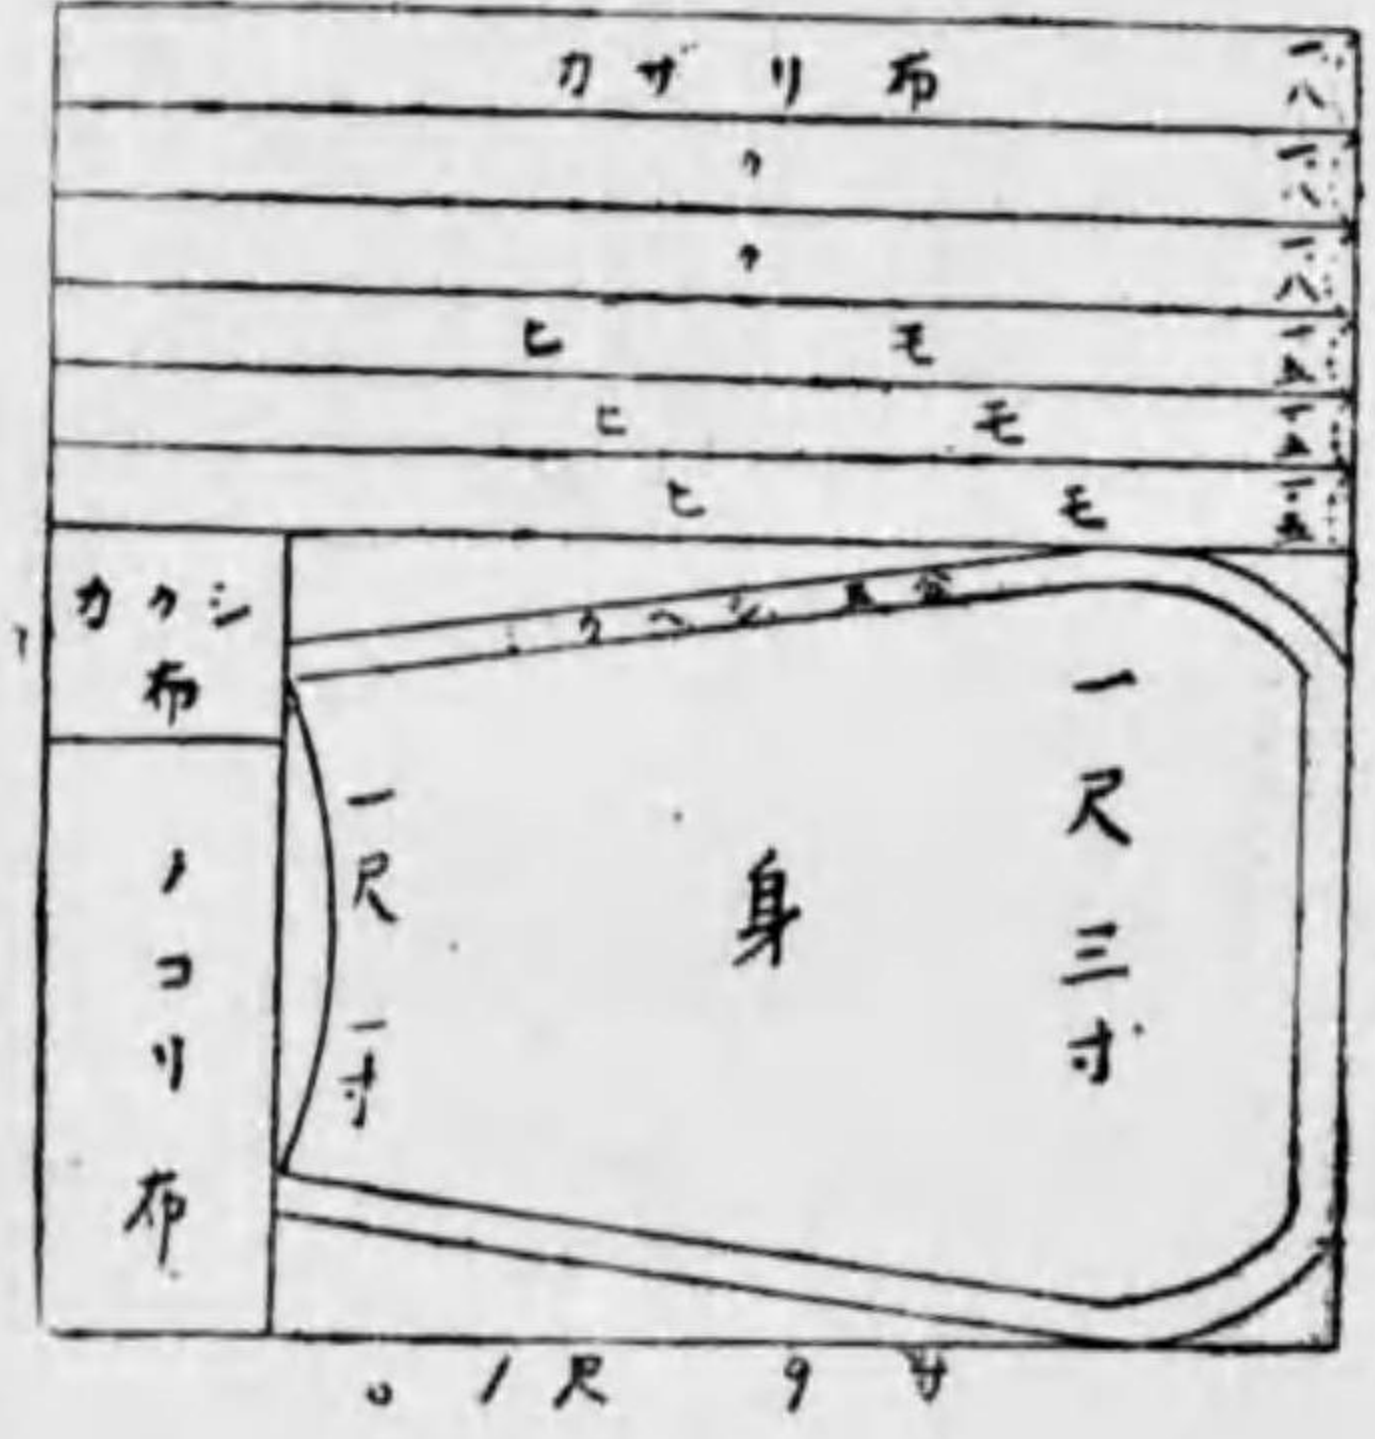 カザリ布 一、八
〃 一、八
〃 一、八
ヒモ 一、五
ヒモ 一、五
ヒモ 一、五
カクシ
布
ノコリ布
クヘシ五分
一尺一寸
身
一尺三寸
1尺9寸